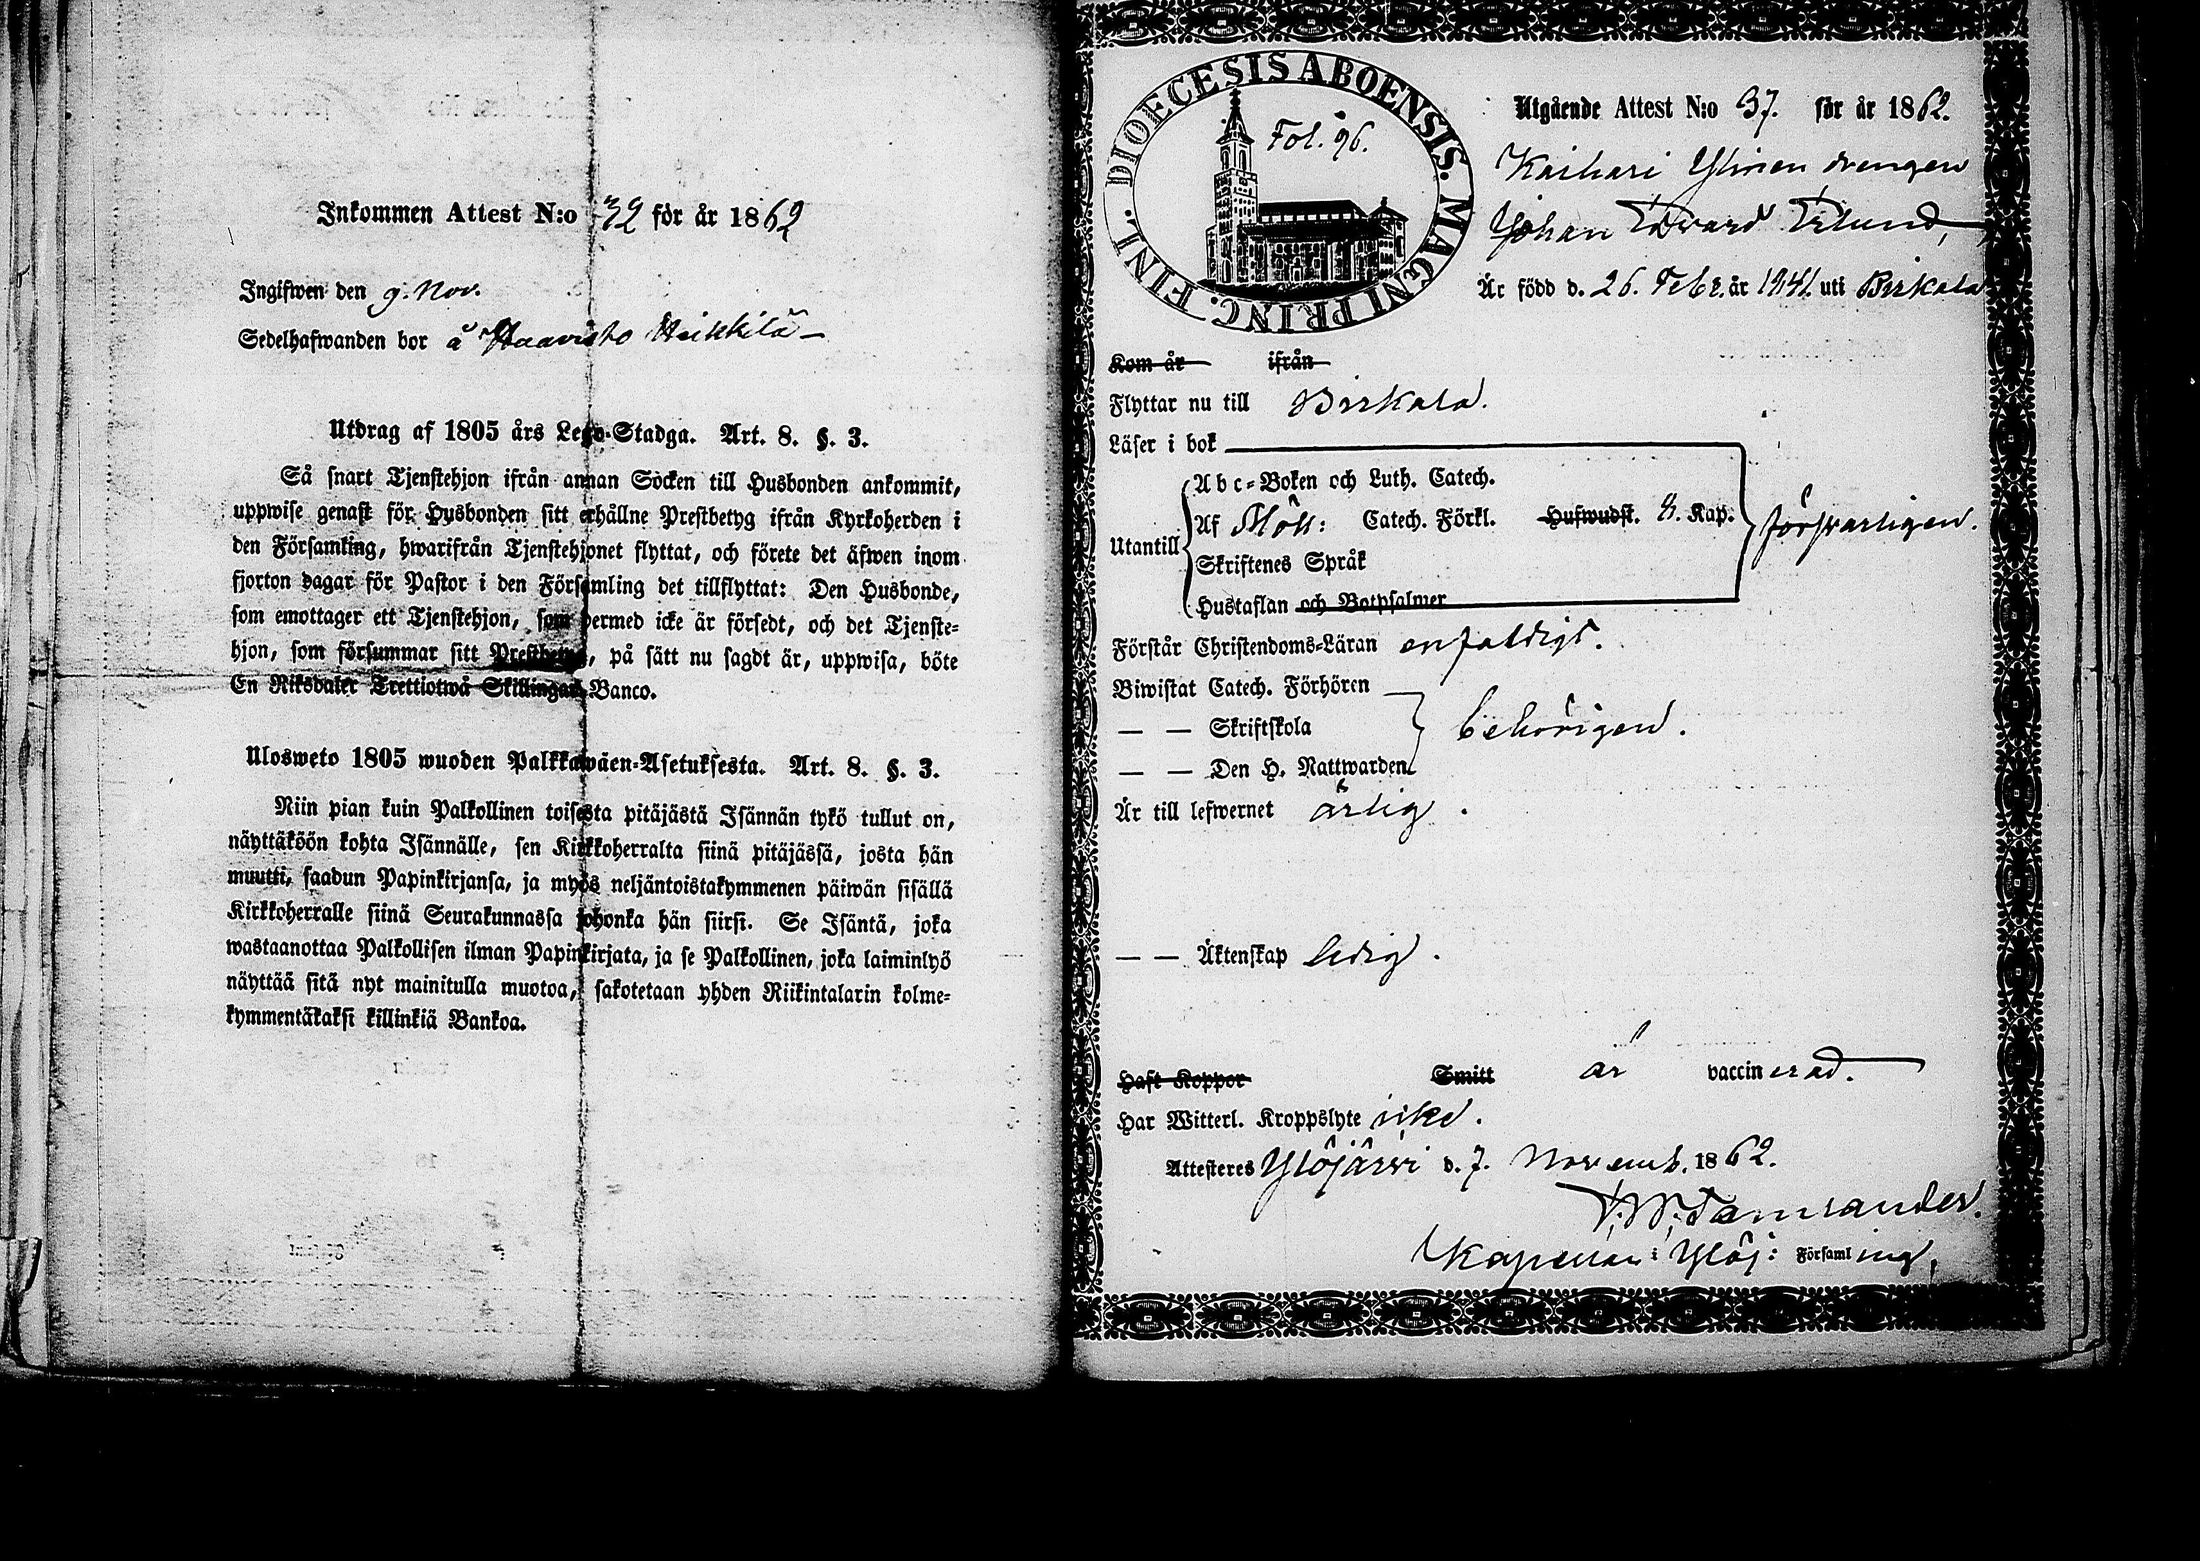 Inkommen Attest N:o 32 för år 1862
Ingifwen den 9. Nov.
Sedelhafwanden bor å Haavisto Heikkilä
Utdrag af 1805 års Lego-Stadga. Art. 8. §. 3.
Så snart Tjenstehjon ifrån annan Socken till Husbonden ankommit,
uppwise genast för Husbonden sitt erhållne Prestbetyg ifrån Kyrkoherden i
den Församling, hwarifrån Tjenstehjonet flyttat, och förete det äfwen inom
fjorton dagar för Pastor i den Församling det tillflyttat: Den Husbonde,
som emottager ett Tjenstehjon, som dermed icke är försedt, och det Tjenste-
hjon, som försummar sitt Prestbetyg, på sätt nu sagdt är, uppwisa, böte
En Riksdaler Trettiotwå Skillingar Banco.
Ulosweto 1805 wuoden Palkkawäen-Asetuksesta. Art. 8. §. 3.
Niin pian kuin Palkollinen toisesta pitäjästä Isännän tykö tullut on,
näyttäköön kohta Isännälle, sen Kirkkoherralta siinä pitäjässä, josta hän
muutti, saadun Papinkirjansa, ja myös neljäntoistakymmenen päiwän sisällä
Kirkkoherralle siinä Seurakunnassa johonka hän siirsi. Se Isäntä, joka
wastaanottaa Palkollisen ilman Papinkirjata, ja se Palkollinen, joka laiminlyö
näyttää sitä nyt mainitulla muotoa, sakotetaan yhden Riikintalarin kolme-
kymmentäkaksi killinkiä Bankoa.
DIOECESIS ABOENSIS. MAGNI PRINC. FINL.
Fol. 96.
Utgående Attest N:o 37. för år 1862.
Kaihari Ylinen drengen
Johan Edvard Erlund,
Är född d. 26. Febr. år 1841. uti Birkala
Kom år ifrån
Flyttar nu till Birkala.
Läser i bok
Utantill
Abc-Boken och Luth. Catech.
Af Möll: Catech. Förkl. Hufwudst. 8. Kap.
Skriftenes Språk
Hustaflan och Botpsalmer
försvarligen.
Förstår Christendoms-Läran enfaldigt.
Biwistat Catech. Förhören
— — Skriftskola
— — Den H. Nattwarden
behörigen.
Är till lefwernet ärlig.
— — Äktenskap ledig.
Haft Koppor Smitt är vaccinerad.
Har Witterl. Kroppslyte icke.
Attesteres Ylöjärvi d. 7. Novemb. 1862.
Tamlander.
Kapellan i Ylöj: Församling,